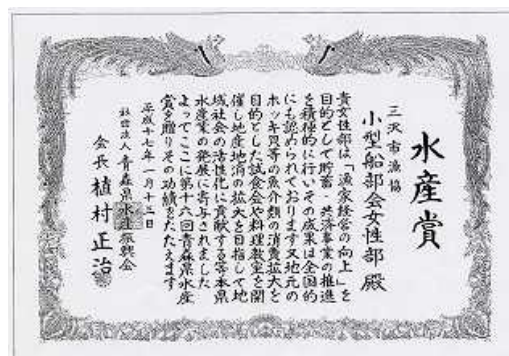 水産賞
三沢市漁協
小型船部会女性部 殿
貴女性部は「漁家経営の向上」を
目的として貯蓄、共済事業の推進
を積極的に行いその成果は全国的
にも認められております又地元の
ホッキ貝等の魚介類の消費拡大を
目的とした試食会や料理教室を開
催し地産地消の拡大を目指して地
域社会の活性化に貢献する等本県
水産業の発展に寄与されました
よってここに第十六回青森県水産
賞を贈りその功績をたたえます
平成十七年一月十三日
社団法人青森県水産振興会
会長 植村正治